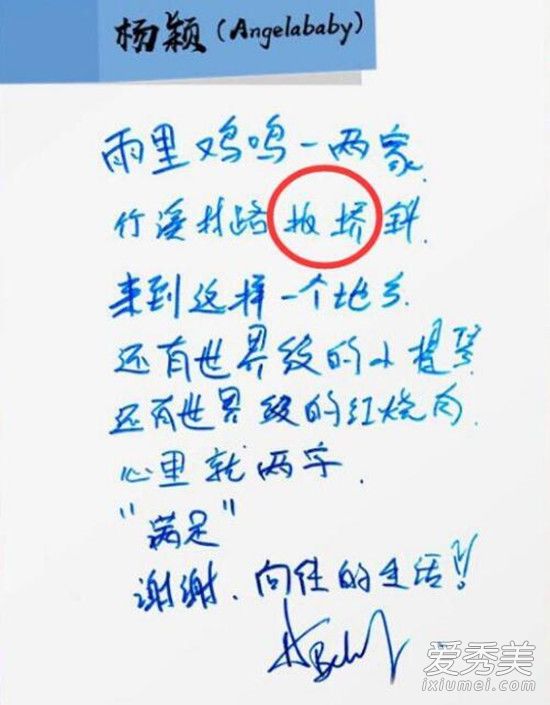 杨颖（Angelababy）
雨里鸡鸣一两家.
竹溪村路扳挢斜.
来到这样一个地方.
还有世界级的小提琴
还有世界级的红烧肉.
心里就两字.
"满足"
谢谢.向往的生活!!
爱秀美
ixiumei.com